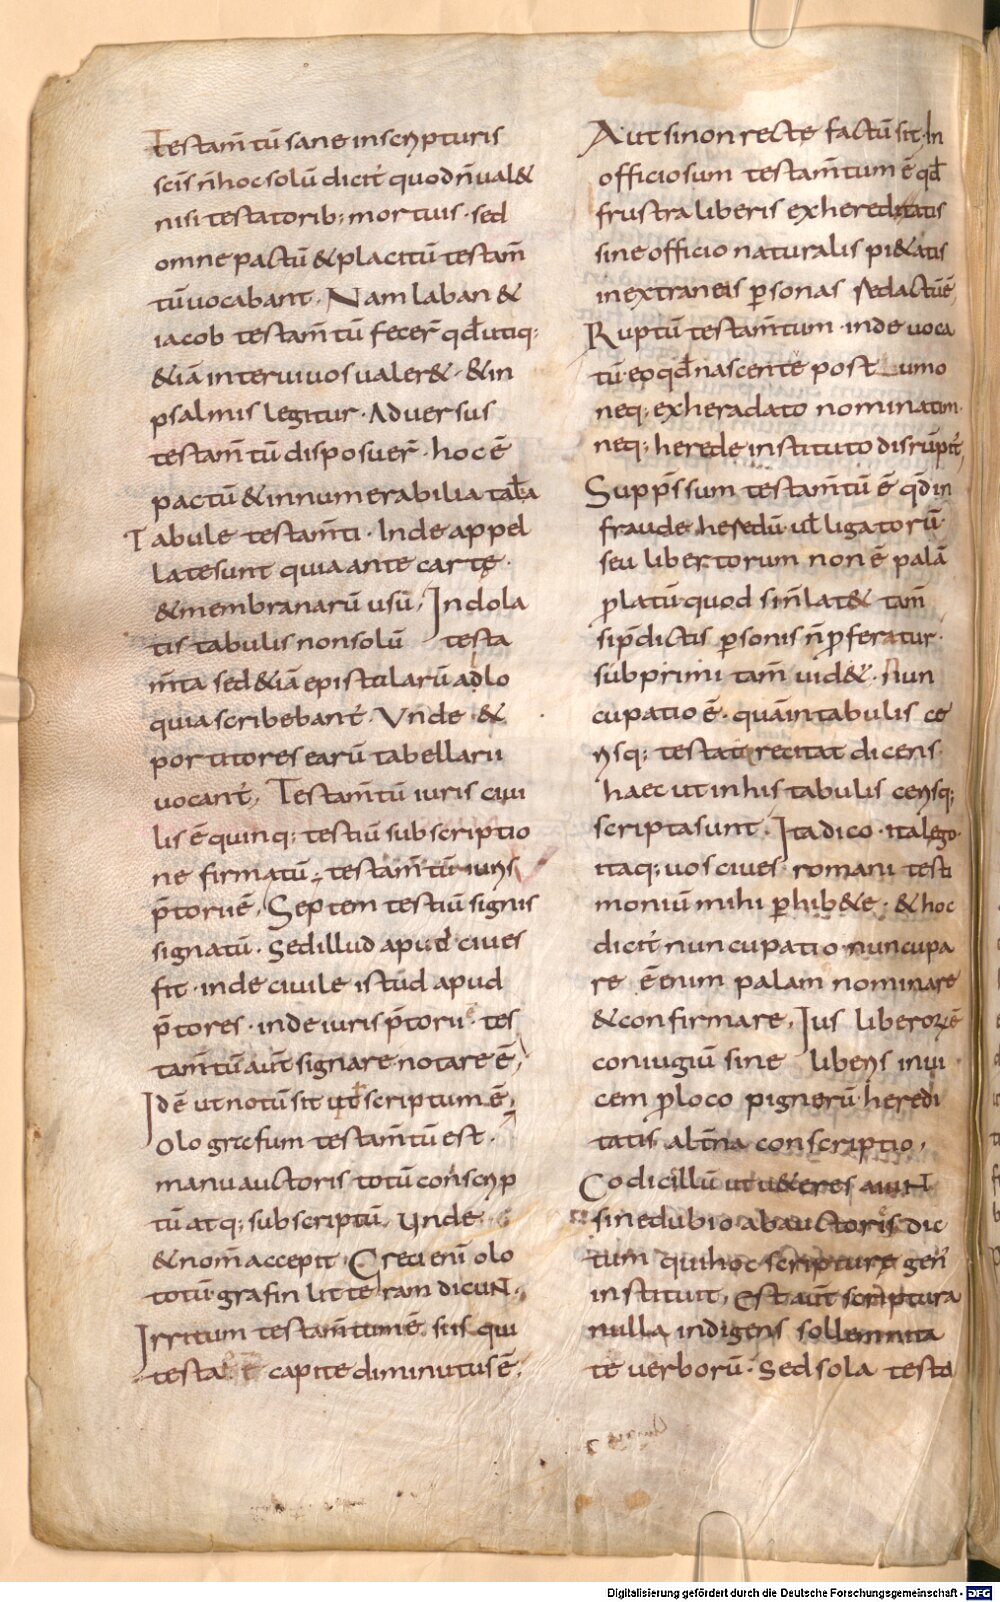 Testam̄tū sane inscripturis
scīs n̄ hoc solū dicit̄ quod n̄ ual&
nisi testatorib; mortuis · sed
omne pactū & placitū testam̄
tū uocabant · Nam laban &
iacob testam̄tū fecer̄ qđ utiq;
&iā inter uiuos ualer& · & in
psalmis legitur · Aduersus
testam̄tū disposuer̄ · hoc ē
pactū & innumerabilia talia
Tabule testam̄ti · Inde appel
late sunt quia ante cartę ·
& membranarū usū, In dola
tis tabulis non solū testa
m̄ta sed &iā epistularū adlo
quia scribebant̄ · Vnde · &
portitores earū tabellarii
uocant̄, Testam̄tū iuris ciui
lis ē quinq; testiū subscriptio
ne firmatū, testam̄tū iuris
p̄torii ē, Septem testiū signis
signatū · Sed illud apud ciues
fit · inde ciuile istud apud
p̄tores · inde iuris p̄torii · tes
tam̄tū aut̄ signare notare ē,
Id ē ut notū sit scriptum ē,
Olografum testam̄tū est ·
manu auctoris totū conscrip
tū atq; subscriptū, Unde
& nom̄ accepit, Greci enī olo
totū · grafin litteram dicuNt,
Irritum testam̄tum ē, si is qui
testa capite diminutus ē,
Aut si non recte factū sit · In
officiosum testam̄tum ē qđ
frustra liberis exhereditatis
sine officio naturalis pi&atis
in extraneis p̱sonas redactū ē,
Ruptū testam̄tum · inde uoca
tū eo qđ nascente post umo
neq; exheradato nominatim ·
neq; herede instituto disrūpit̄,
Suppr̄ssum testam̄tū ē qđ in
fraude heredū ul̄ ligatorū ·
seu libertorum non ē palā
p̱latū quod si n̄ lat& tam̄
si p̄dictis p̱sonis n̄ p̱feratur ·
subprimi tam̄ uid& · Nun
cupatio ē · quā in tabulis ce
risq; testat recitat dicens
haec ut in his tabulis cerisq;
scripta sunt · Ita dico · ita lego ·
itaq; uos ciues romani testi
moniū mihi p̱hib&e · & hoc
dicit̄ nuncupatio · nuncupa
re ē enim palam nominare
& confirmare, Ius liberoꝝ ē
coniugiū sine liberis inui
cem p̱ loco pignerū heredi
tatis alt̄na conscriptio,
Codicillū ut u&eres aiuNt
sine dubio ab auctoris dic
tum qui hoc scripture gen̄
instituit, Est aut̄ scriptura
nulla indigens sollemnita
te uerborū · Sed sola testa
Digitalisierung gefördert durch die Deutsche Forschungsgemeinschaft - DFG